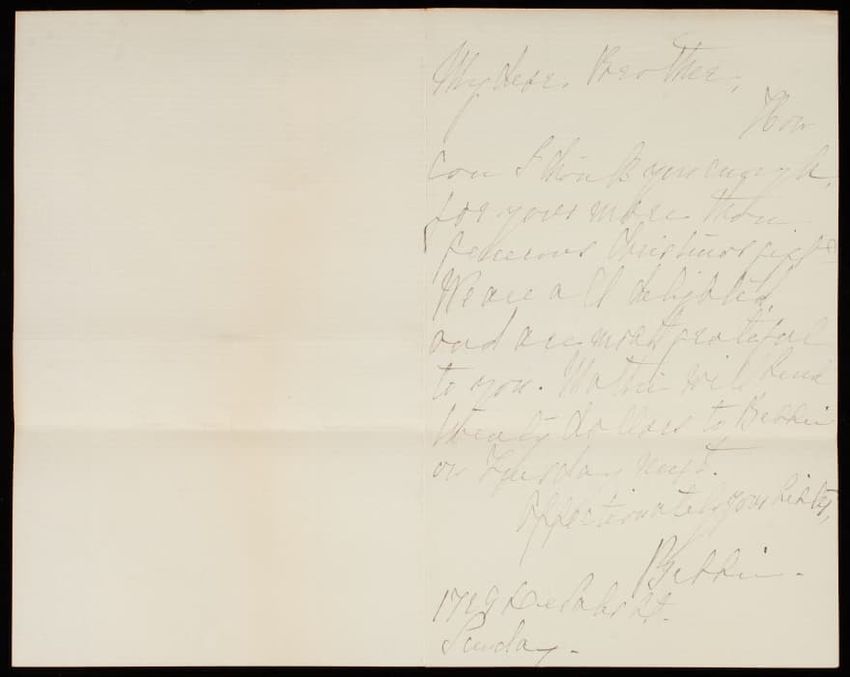 My dear Brother,
How
can I thank you enough,
for your more than
generous Christmas gift?
We are all delighted,
and are most grateful
to you. Mother will send
twenty dollars to
on Tuesday next.
Affectionately your sister,

De Sales St.
Sunday -